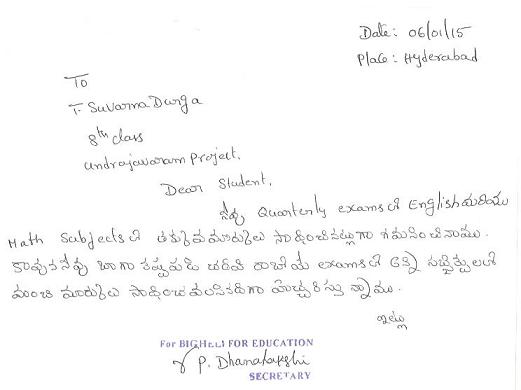 Date: 06/01/15
Place: Hyderabad
To
T. Suvarna Durga
8th class
undrajavaram Project.
Dear Student,
నీవు Quarterly examsలో English మరియు
Math Subjectsలో తక్కువ మార్కులు సాధించినట్లుగా గమనించినాము.
కావున నీవు బాగా కష్టపడి చదివి రాబోయే examsలో అన్ని సబ్జెక్టులలో
మంచి మార్కులు సాధించవలసినదిగా హెచ్చరిస్తున్నాము.
ఇట్లు
For BIGHELP FOR EDUCATION
P. Dhanalakshi
SECRETARY